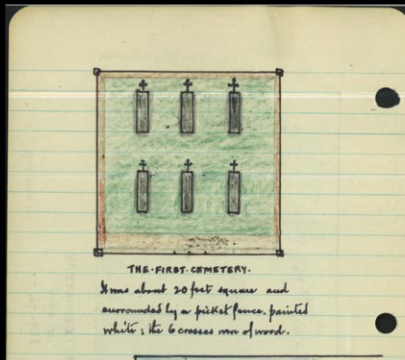 THE·FIRST·CEMETERY.
It was about 20 feet square and
surrounded by a picket fence. painted
white; the 6 crosses were of wood.